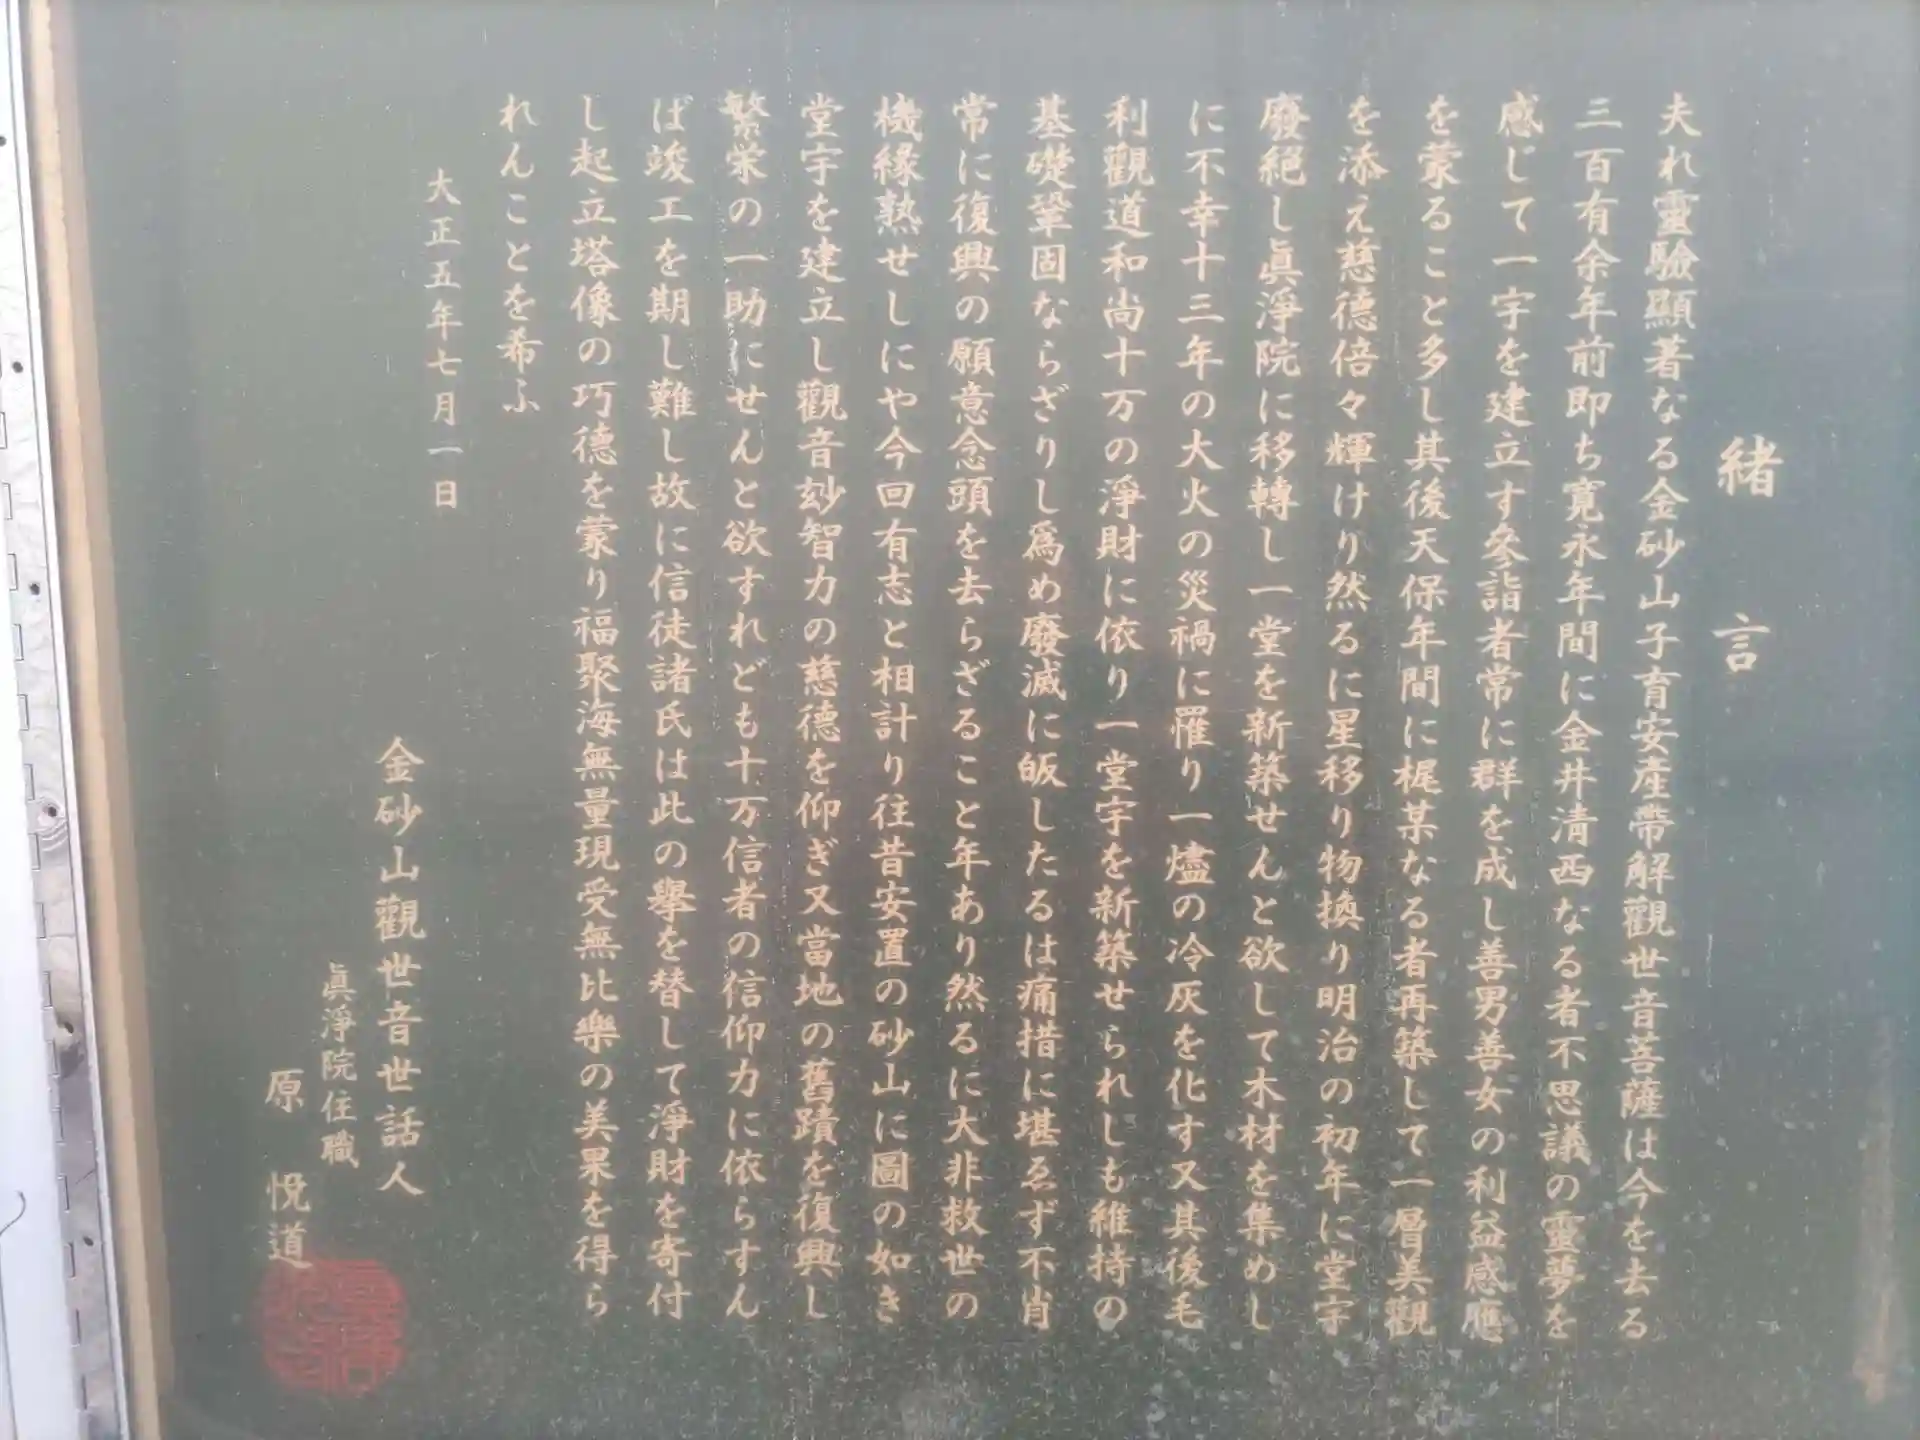 緒言
夫れ靈驗顯著なる金砂山子育安產帶解觀世音菩薩は今を去る
三百有余年前即ち寛永年間に金井清西なる者不思議の靈夢を
感じて一宇を建立す參詣者常に群を成し善男善女の利益感應
を蒙ること多し其後天保年間に梶某なる者再築して一層美觀
を添え慈德倍々輝けり然るに星移り物換り明治の初年に堂宇
廢絕し眞淨院に移轉し一堂を新築せんと欲して木材を集めし
に不幸十三年の大火の災禍に罹り一燼の冷灰を化す又其後毛
利觀道和尚十万の淨財に依り一堂宇を新築せられしも維持の
基礎鞏固ならざりし爲め廢滅に皈したるは痛措に堪ゑず不肖
常に復興の願意念頭を去らざること年あり然るに大非救世の
機緣熟せしにや今回有志と相計り往昔安置の砂山に圖の如き
堂宇を建立し觀音玅智力の慈德を仰ぎ又當地の舊蹟を復興し
繁栄の一助にせんと欲すれども十万信者の信仰力に依らすん
ば竣工を期し難し故に信徒諸氏は此の擧を替して淨財を寄付
し起立塔像の巧德を蒙り福聚海無量現受無比樂の美果を得ら
れんことを希ふ
大正五年七月一日
金砂山觀世音世話人
眞淨院住職
原悅道